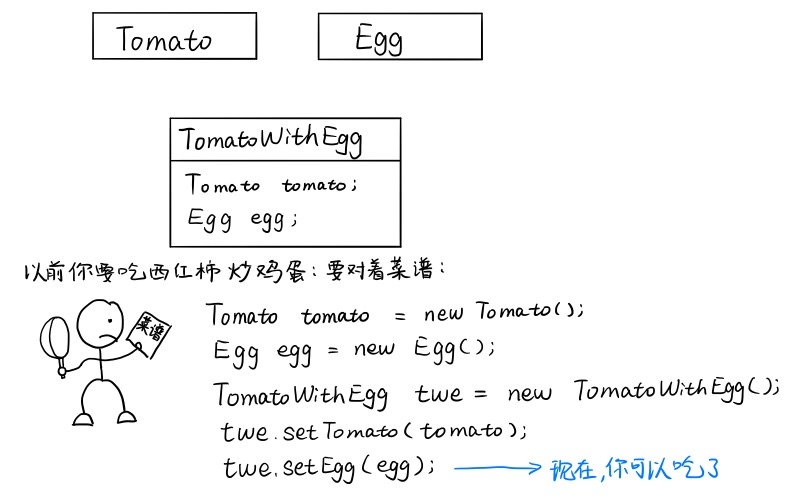 Tomato
Egg
TomatoWithEgg
Tomato tomato;
Egg egg;
以前你要吃西红柿炒鸡蛋:要对着菜谱:
菜谱
Tomato tomato = new Tomato();
Egg egg = new Egg();
TomatoWithEgg twe = new TomatoWithEgg();
twe.setTomato(tomato);
twe.setEgg(egg); 现在,你可以吃了